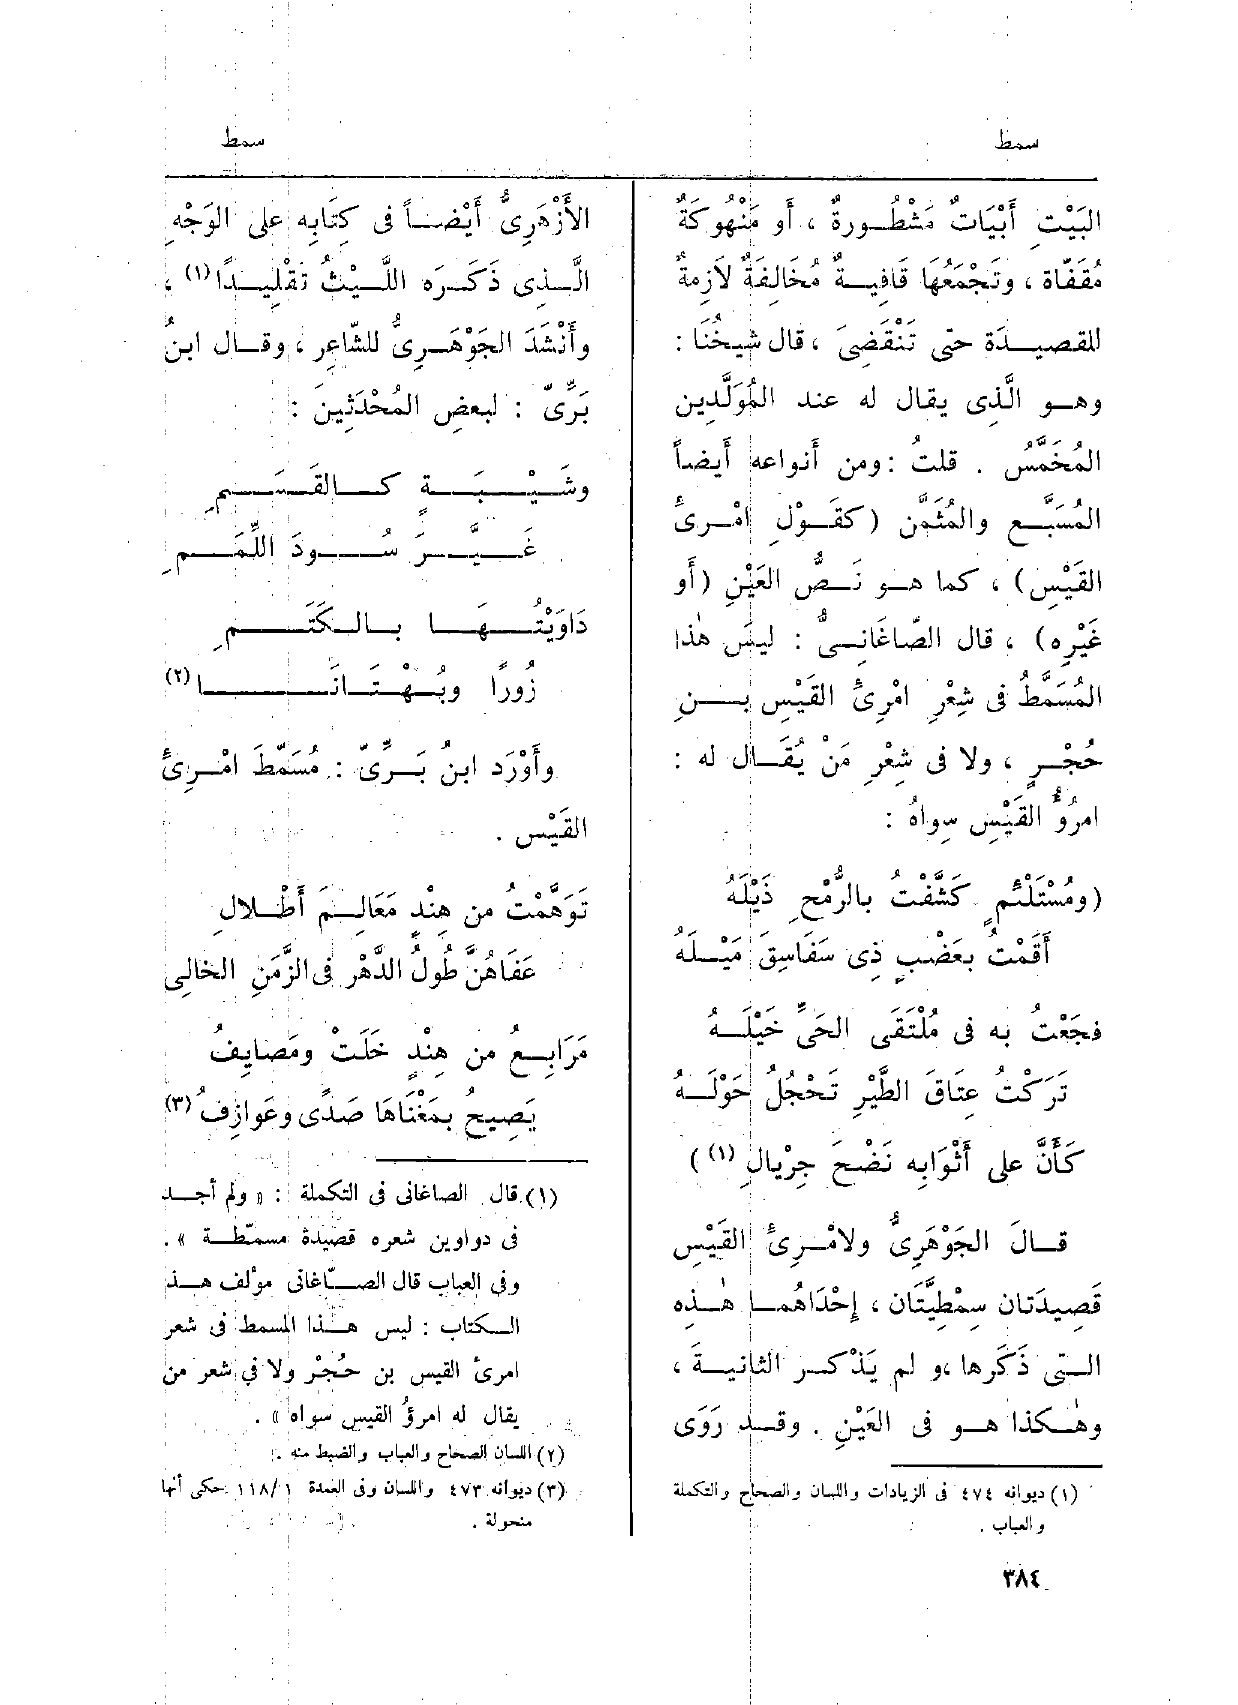 سمط
سمط
البَيْتِ أَبْيَاتٌ مَشْطُورةٌ ، أَو مَنْهُوكَةٌ
مُقَفّاة ، وتَجْمَعُهَا قَافِيةٌ مُخَالِفَةٌ لاَزِمةٌ
للقصيدَة حتى تَنْقَضِىَ ، قال شيخُنَا :
وهو الَّذى يقال له عند المُوَلَّدِين
المُخَمَّسُ . قلتُ : ومن أَنواعه أَيضاً
المُسَبَّع والمُثَمَّن (كقَوْلِ امْرِئِ
القَيْسِ) ، كما هو نَصُّ العَيْنِ (أَو
غَيْرِه) ، قال الصّاغَانِىُّ : ليسَ هٰذا
المُسَمَّطُ فى شِعْرِ امْرِئِ القَيْسِ بنِ
حُجْرٍ ، ولا فى شِعْرِ مَنْ يُقَال له :
امرُؤُ القَيْسِ سِواهُ :
(ومُسْتَلْئمٍ كَشَّفْتُ بالرُّمْحِ ذَيْلَهُ
أَقَمْتُ بعَضْبٍ ذِى سَفَاسِقَ مَيْلَهُ
فجَعْتُ به فى مُلْتَقَى الحَىِّ خَيْلَهُ
تَرَكْتُ عِتَاقَ الطَّيْرِ تَحْجُلُ حَوْلَهُ
كَأَنَّ على أَثْوَابِه نَضْحَ جِرْيالِ (١) )
قالَ الجَوْهَرِىُّ ولامْرِئِ القَيْسِ
قَصِيدَتان سِمْطِيَّتَان ، إِحْدَاهُما هٰذِه
التى ذَكَرها ،و لم يَذْكر الثانيةَ ،
وهٰكذا هو فى العَيْنِ . وقد رَوَى
(١) ديوانه ٤٧٤ فى الزيادات واللسان والصحاح والتكملة
والعباب .
الأَزْهَرِىُّ أَيْضاً فى كِتَابِه على الوَجْهِ
الَّذِى ذَكَرَه اللَّيْثُ تَقْلِيدًا (١) ،
وأَنْشَدَ الجَوْهَرِىُّ للشّاعِر ، وقال ابنُ
بَرِّىّ : لبعضِ المُحْدَثِينَ :
وشَيْبَةٍ كالقَسَمِ
غَيَّرَ سُودَ اللِّمَمِ
دَاوَيْتُهَا بالكَتَمِ
زُورًا وبُهْتَانَا (٢)
وأَوْرَد ابنُ بَرِّىّ : مُسَمَّطَ امْرِئِ
القَيْس .
تَوَهَّمْتُ من هِنْدٍ مَعَالِمَ أَطْلالِ
عَفَاهُنَّ طُولُ الدَّهْرِ فى الزَّمَنِ الخالِى
مَرَابِعُ من هِنْدٍ خَلَتْ ومَصَايِفُ
يَصِيحُ بمَغْنَاهَا صَدًى وعَوازِفُ (٣)
(١) قال الصاغانى فى التكملة : « ولم أجد
فى دواوين شعره قصيدة مسمّطة » .
وفى العباب قال الصّاغانى مؤلف هذا
الكتاب : ليس هذا المسمط فى شعر
امرئ القيس بن حُجْر ولا فى شعر من
يقال له امرؤُ القيس سواه » .
(٢) اللسان الصحاح والعباب والضبط منه .
(٣) ديوانه ٤٧٣ واللسان وفى العمدة ١ /١١٨ حكى أنها
منحولة .
٣٨٤